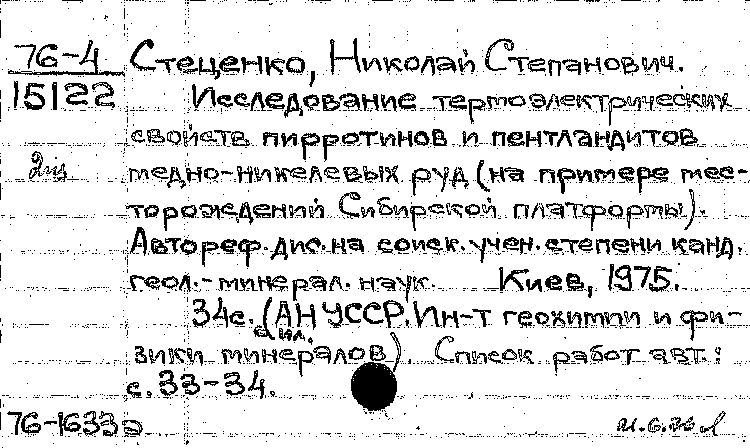 76-4 Стеценко, Николай Степанович.
15122 Исследование термоэлектрических
свойств пирротинов и пентландитов
медно-никелевых руд (на примере мес-
торождений Сибирской платформы).
Автореф. дис. на соиск. учен. степени канд.
геол.-минерал. наук. Киев, 1975.
34с. (АН УССР. Ин-т геохимии и фи-
с ил.
зики минералов). Список работ авт.:
с. 33-34.
76-1633